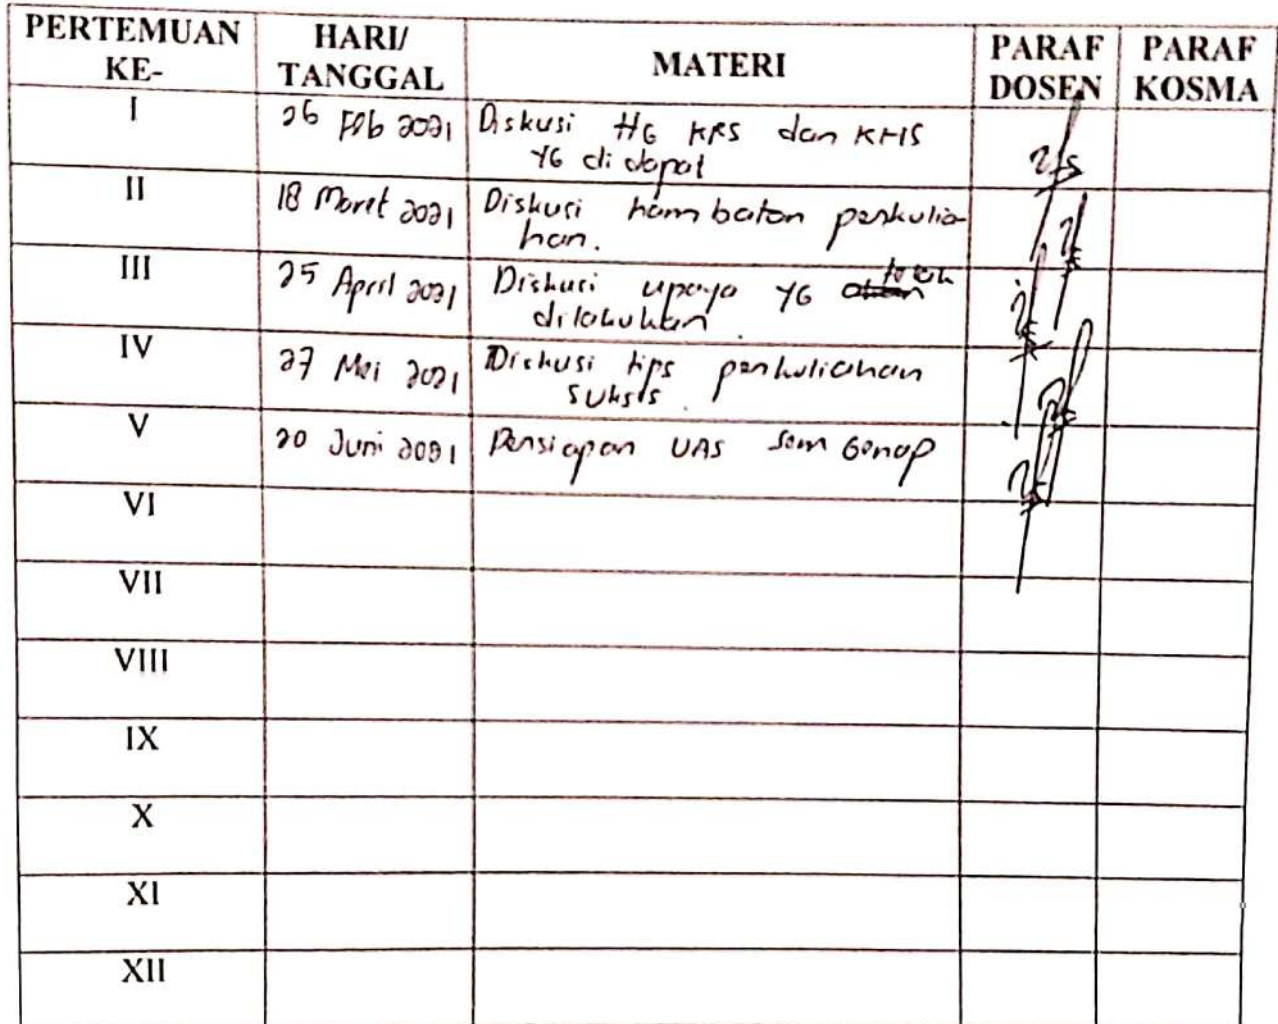 PERTEMUAN KE- HARI/ TANGGAL MATERI PARAF DOSEN PARAF KOSMA
I 26 Feb 2021 Diskusi HG KRS dan KHS
YG di dapat
II 18 Maret 2021 Diskusi hambatan perkulia-
han.
III 25 April 2021 Diskusi upaya YG telah
dilakukan.
IV 27 Mei 2021 Diskusi tips perkuliahan
sukses.
V 20 Juni 2021 Persiapan UAS Sem Genap
VI
VII
VIII
IX
X
XI
XII